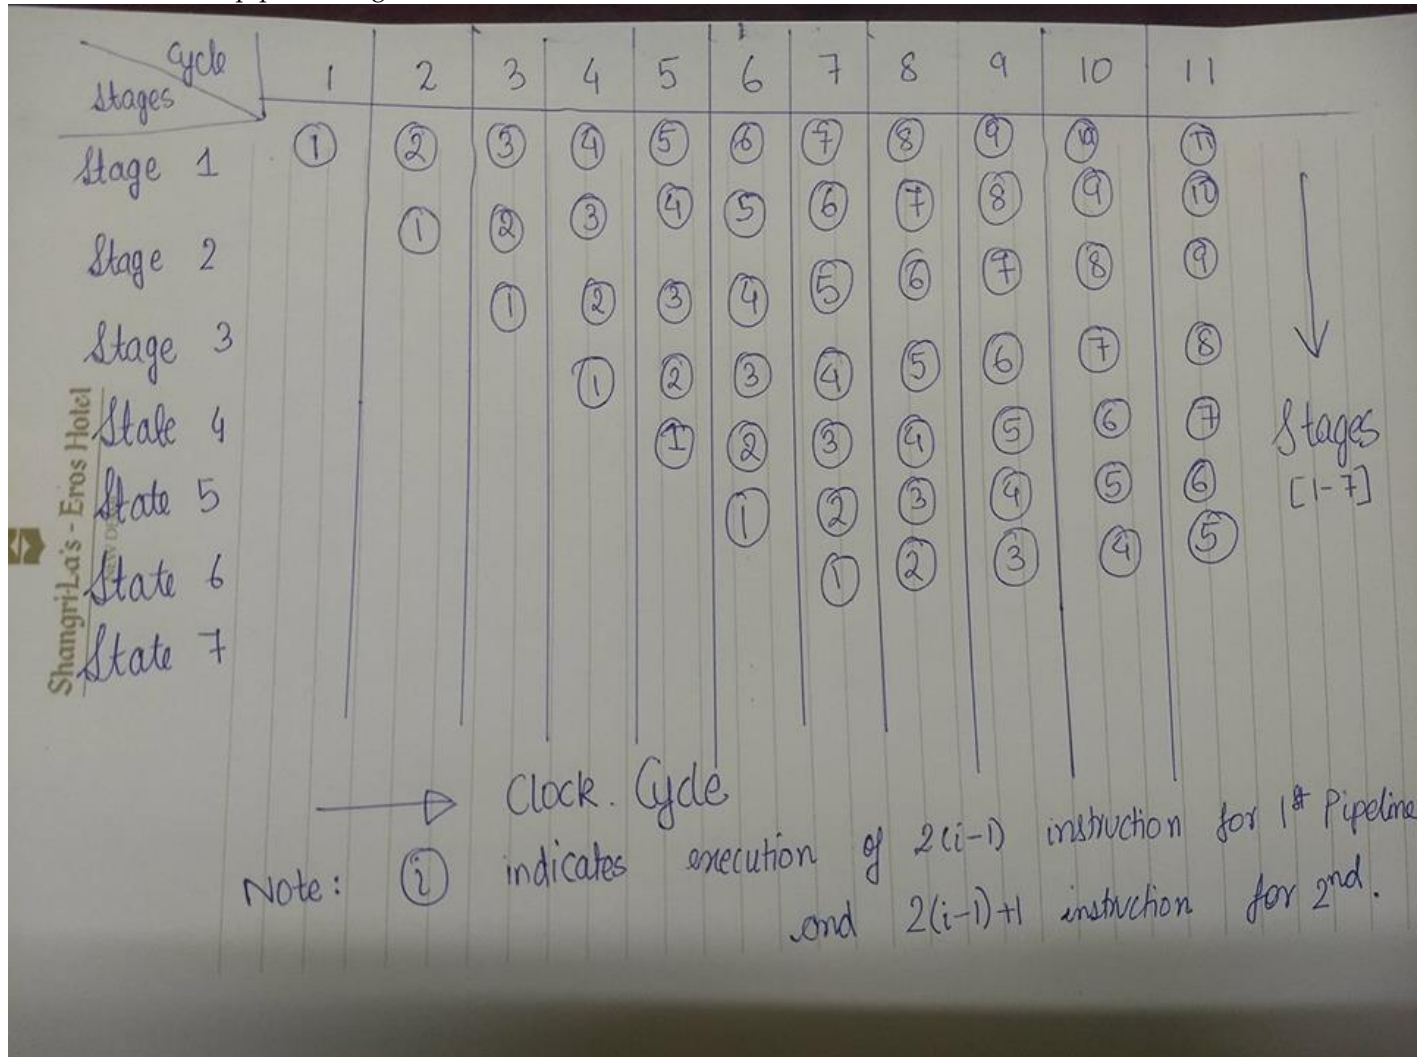 Cycle
Stages
1 2 3 4 5 6 7 8 9 10 11
Stage 1 ① ② ③ ④ ⑤ ⑥ ⑦ ⑧ ⑨ ⑩ ⑪
Stage 2 ① ② ③ ④ ⑤ ⑥ ⑦ ⑧ ⑨ ⑩
Stage 3 ① ② ③ ④ ⑤ ⑥ ⑦ ⑧ ⑨
State 4 ① ② ③ ④ ⑤ ⑥ ⑦ ⑧
State 5 ① ② ③ ④ ⑤ ⑥ ⑦
State 6 ① ② ③ ④ ⑤ ⑥
State 7 ① ② ③ ④ ⑤
Stages
[1-7]
Shangri-La's - Eros Hotel
Clock. Cycle
Note: ⓘ indicates execution of 2(i-1) instruction for 1st Pipeline
and 2(i-1)+1 instruction for 2nd.